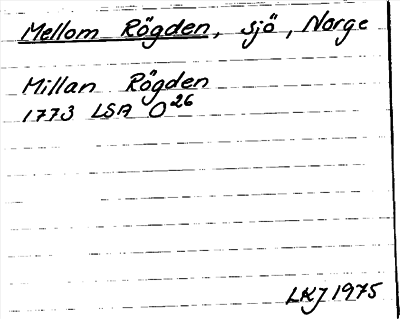 Mellom Rögden, sjö, Norge
Millan Rögden
1773 LSA O26
LKJ 1975